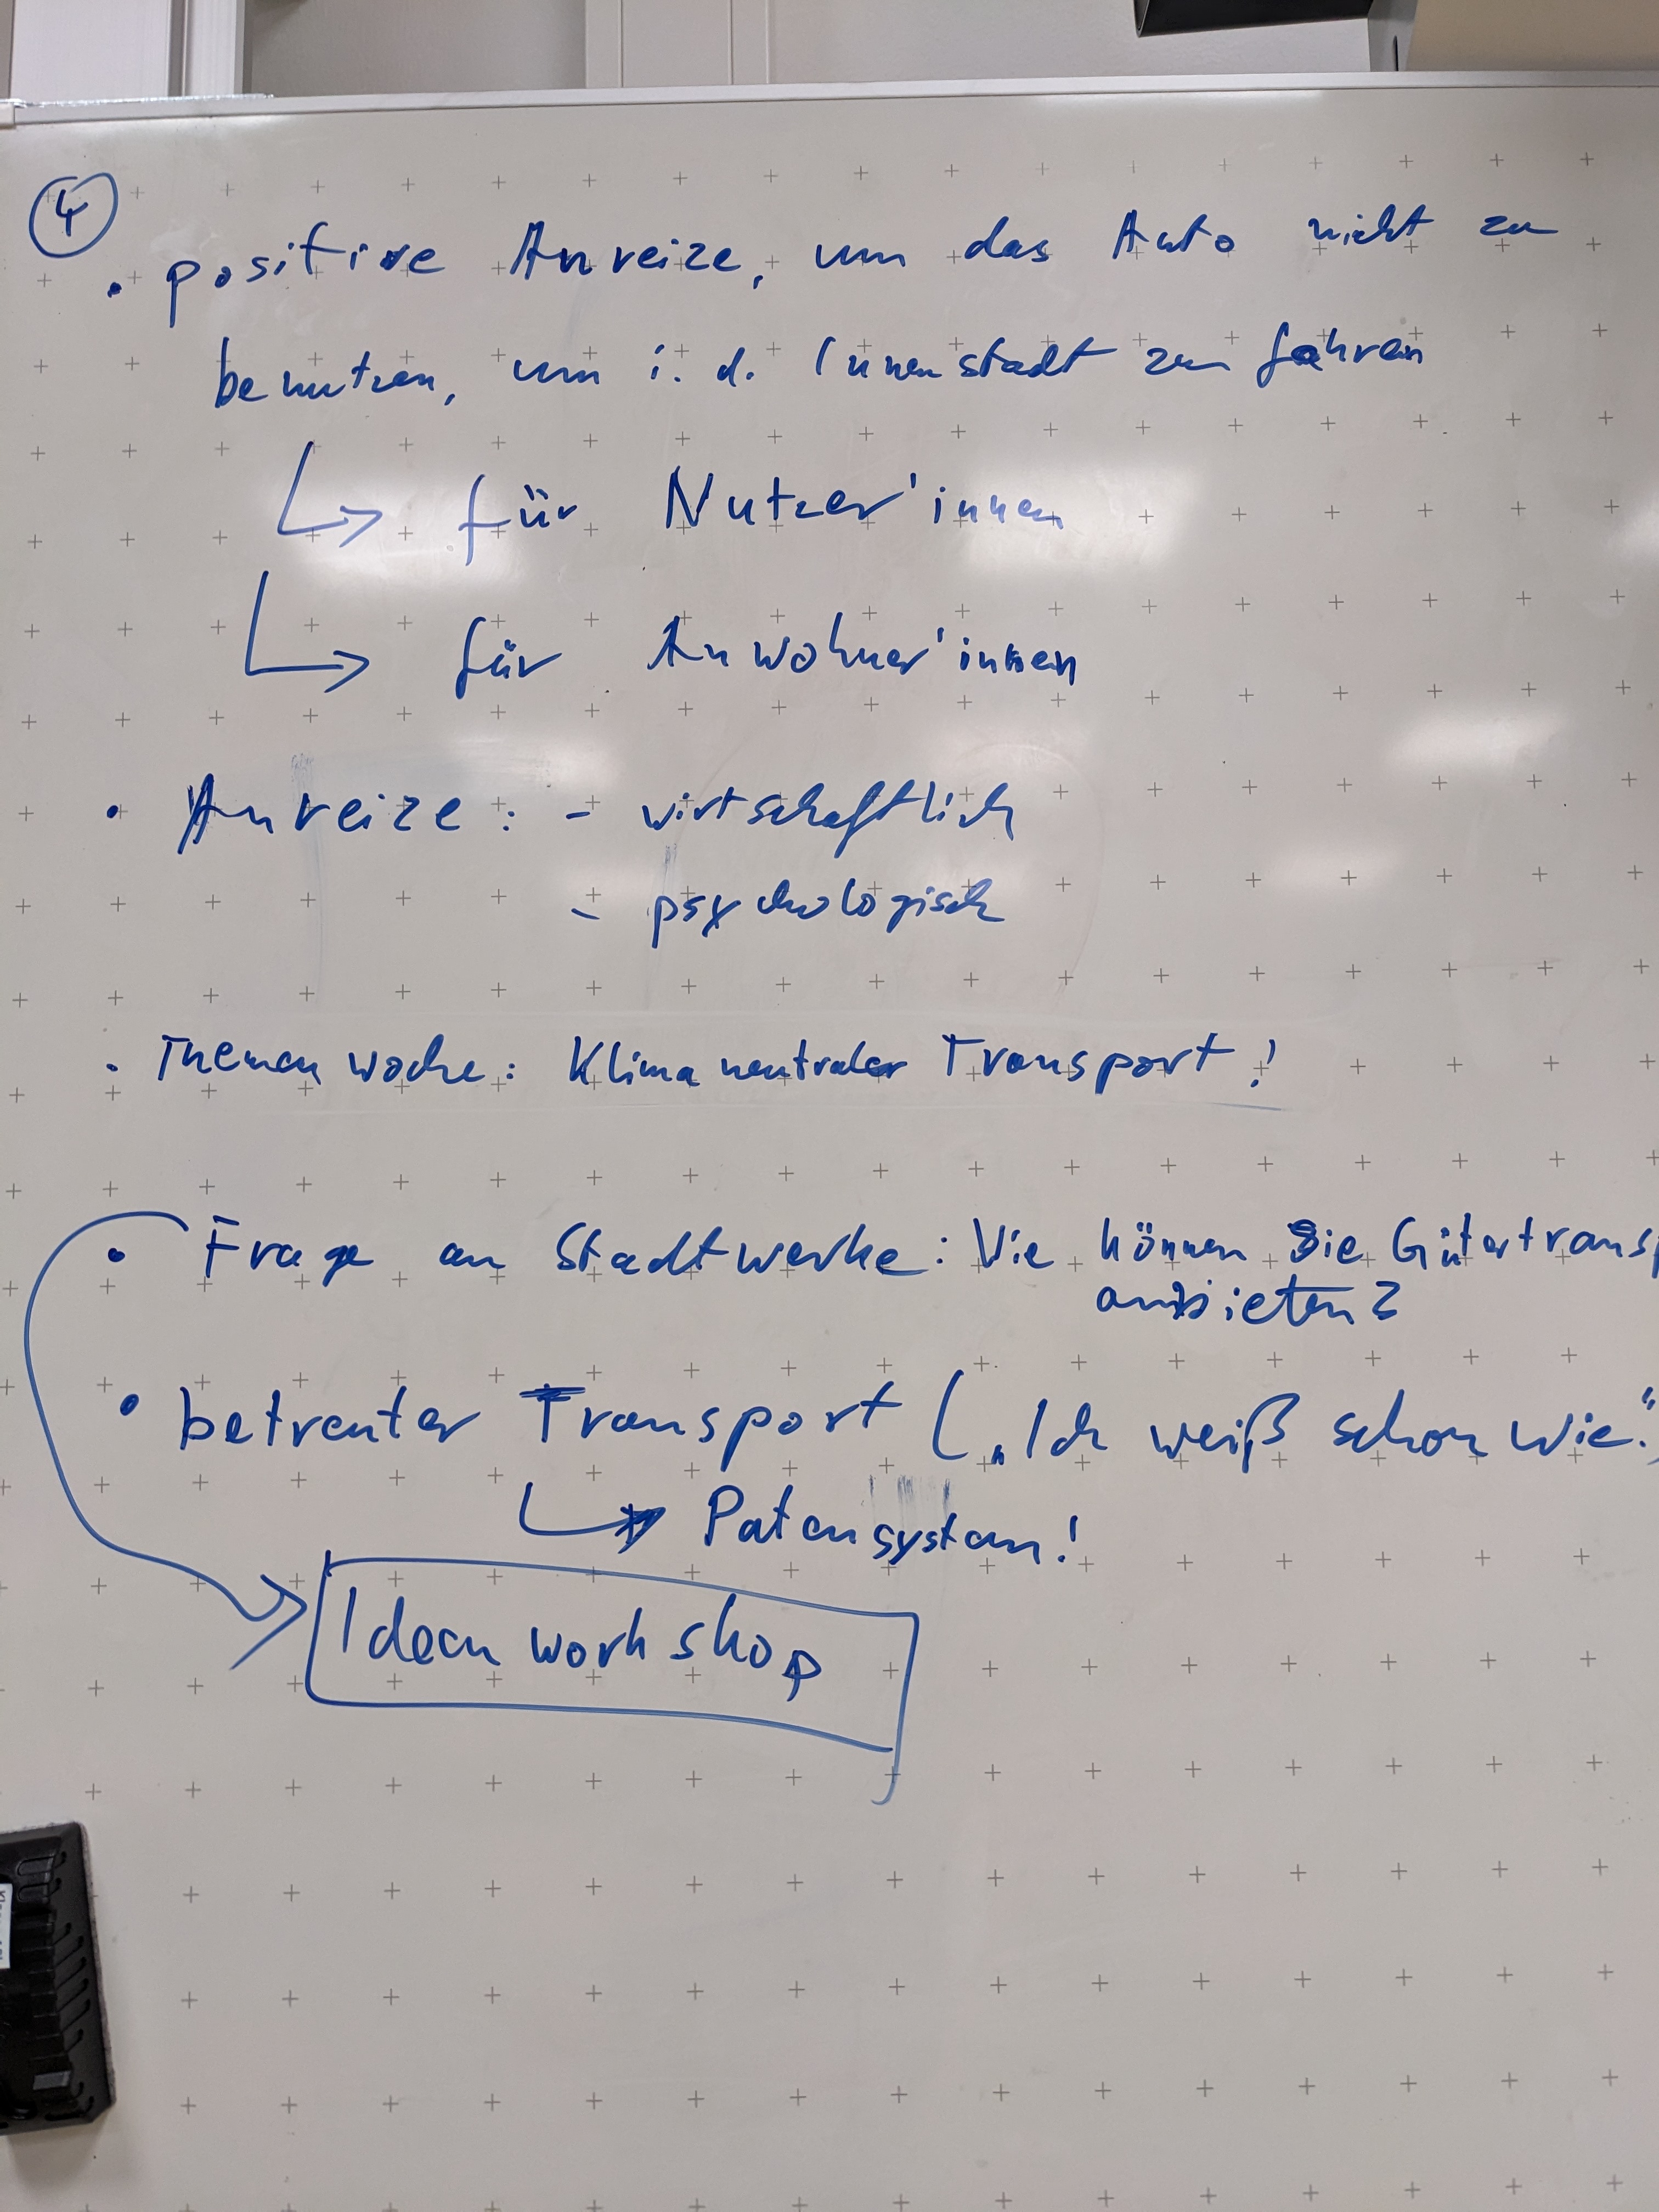 4
• positive Anreize, um das Auto nicht zu
benutzen, um i. d. Innenstadt zu fahren
↳ für Nutzer'innen
↳ für Anwohner'innen
• Anreize: - wirtschaftlich
- psychologisch
• Themenwoche: Klimaneutraler Transport!
• Frage an Stadtwerke: Wie können Sie Gütertransp
anbieten?
• betreuter Transport („Ich weiß schon wie.“)
↳ Patensystem!
Ideenworkshop